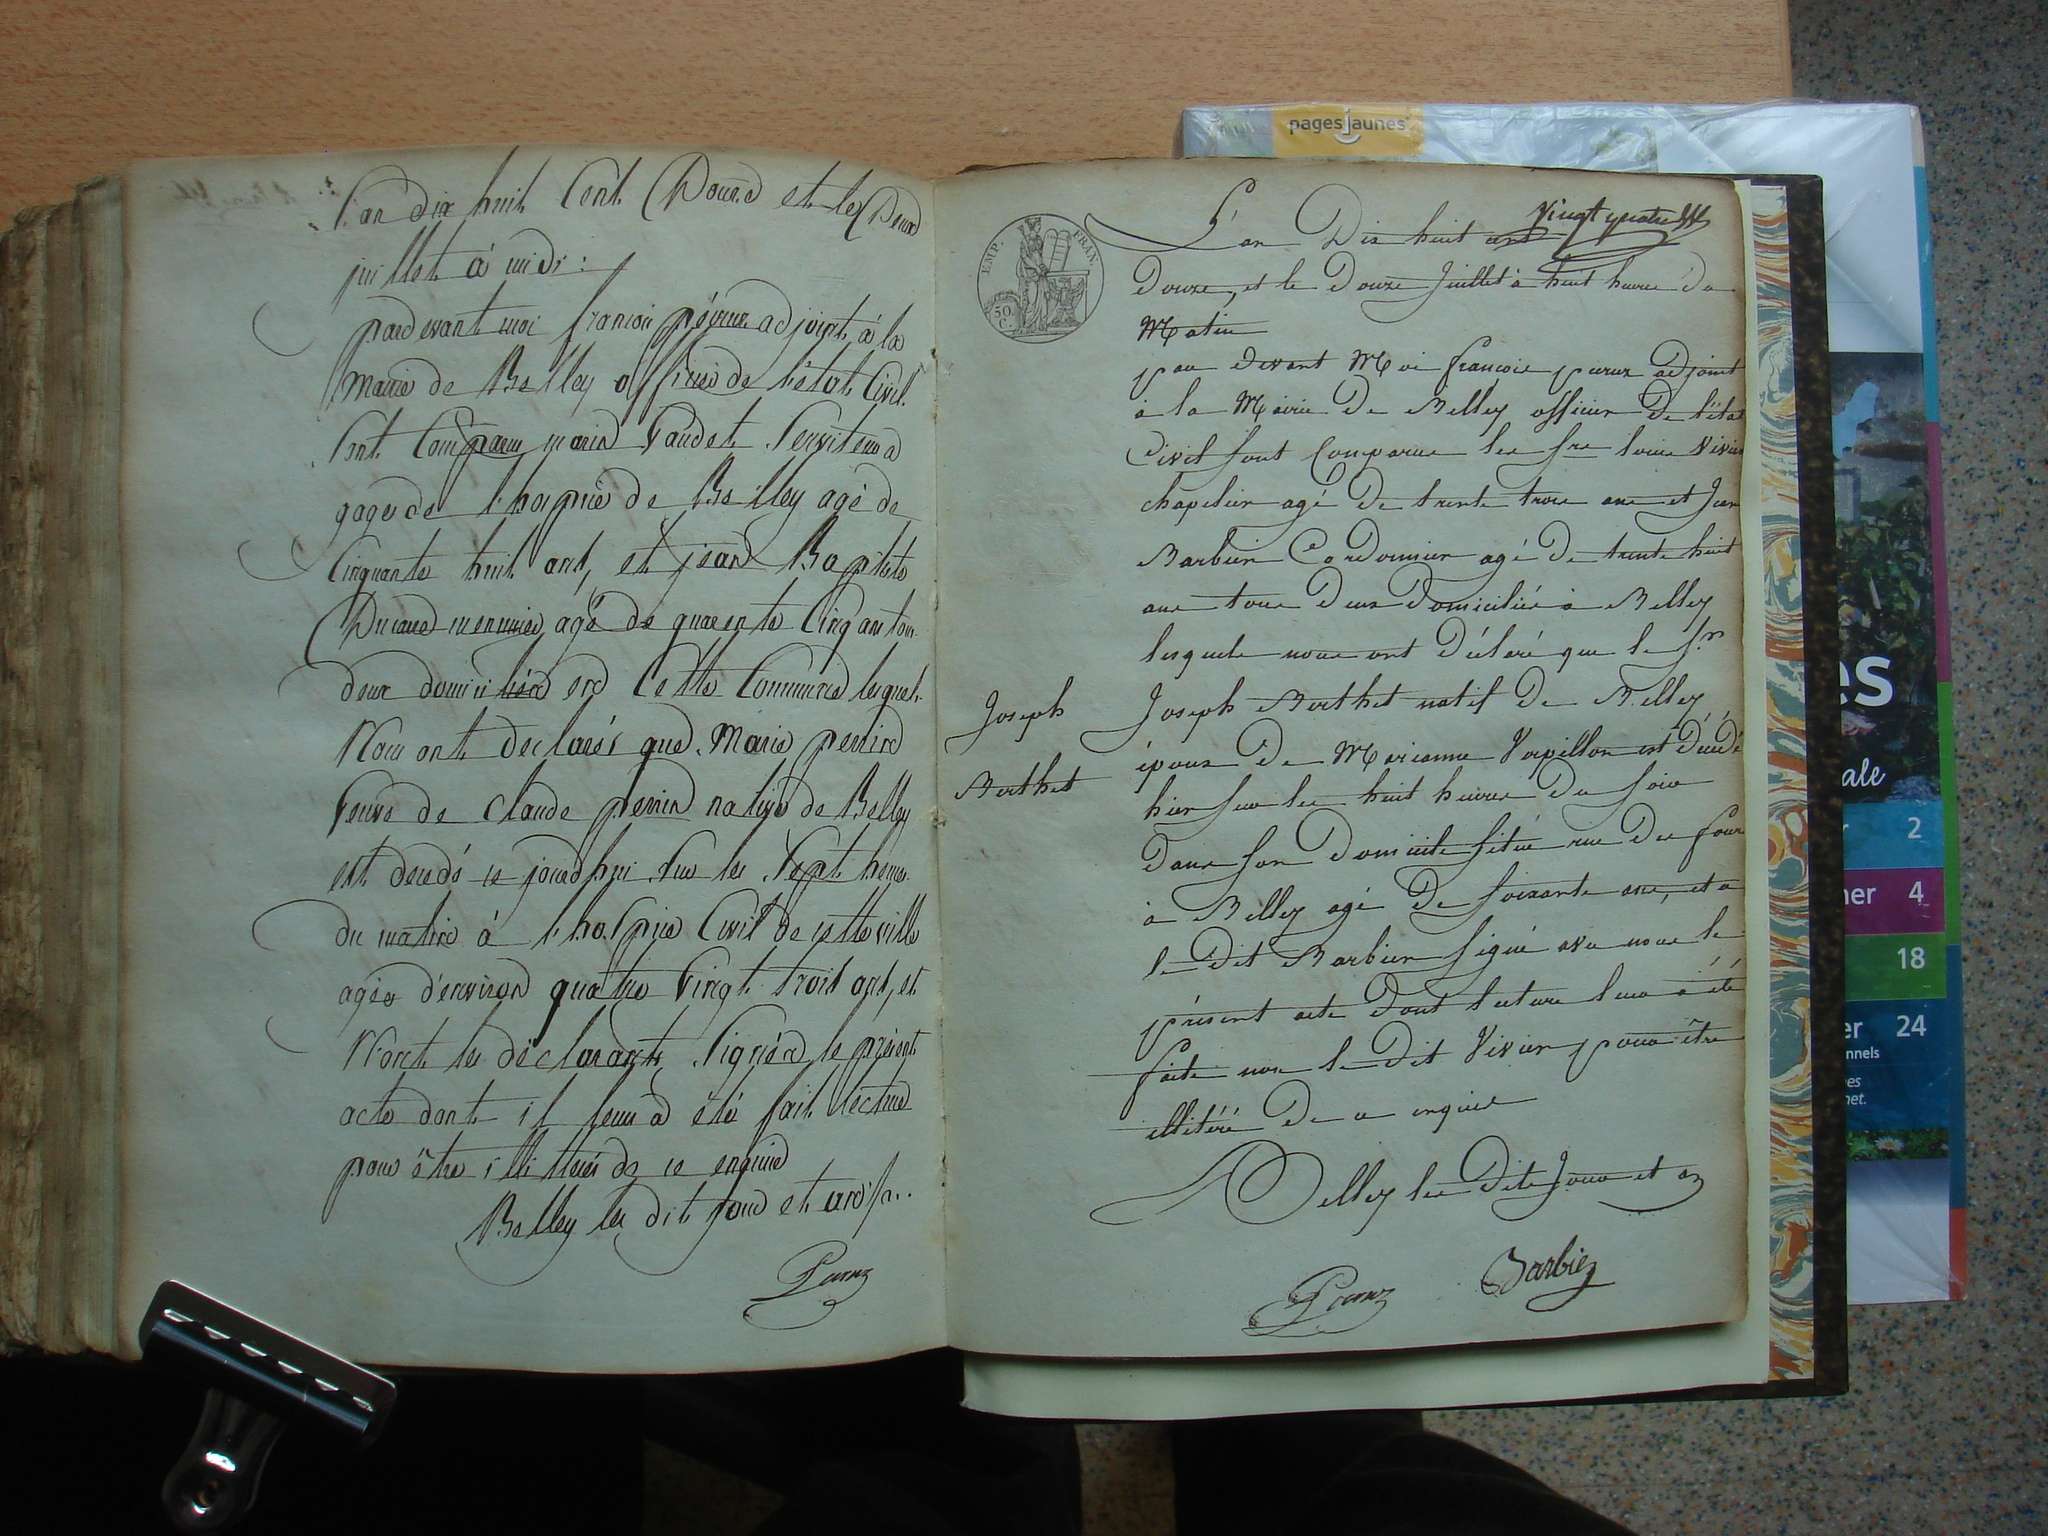 L'an dix huit Cent Douze et le Deux
juillet à midi :
pardevant moi françois péruz adjoint à la
Mairie de Belley officier de l'état Civil.
Sont Comparu marin Gaudet Serviteur a
gage de l'hospice de Belley agé de
Cinquante huit ans, et jean Baptiste
menuisier agé de quarente Cinq ans tous
deux domiciliés en Cette Commune lesquels
Nous ont declarés que Marie perrin
veuve de Claude perrin native de Belley
est decedé ce jourdhui sur les Sept heures
du matin à l'hospice Civil de cette ville
agée d'environ quatre vingt trois ans, et
N'ont les déclarants Signéra le présent
acte dont il leur à été fait lecture
pour être illiterés de ce enquis
Belley les dit jour et an
Peruz
EMP. FRAN.
50 C.
vingt quatre
L'an Dix huit cent
Douze, et le Douze Juillet à huit heures du
Matin
par devant Moi françois peruz adjoint
à la Mairie De Belley officier De l'état
Civil Sont Comparus les Srs louis Vivier
chapelier agé De trente trois ans et Jean
Barbier Cordonnier agé De trente huit
ans tous Deux Domiciliés à Belley
lesquels nous ont Déclaré que le Sr
Joseph Berthet natif De Belley
époux De Marianne Vorpillon est Décédé
hier sur les huit heures Du soir
Dans son Domicile situé rue Du four
à Belley agé De soixante ans, et a
le Dit Barbier signé avec nous le
présent acte Dont lecture leur a été
faite non le Dit Vivier pour être
illitéré De ce enquis
Belley les Dits Jour et an
Peruz
Barbier
Joseph
Berthet
pagesjaunes
es
ale
2
ner 4
18
er 24
nnels
es
net.